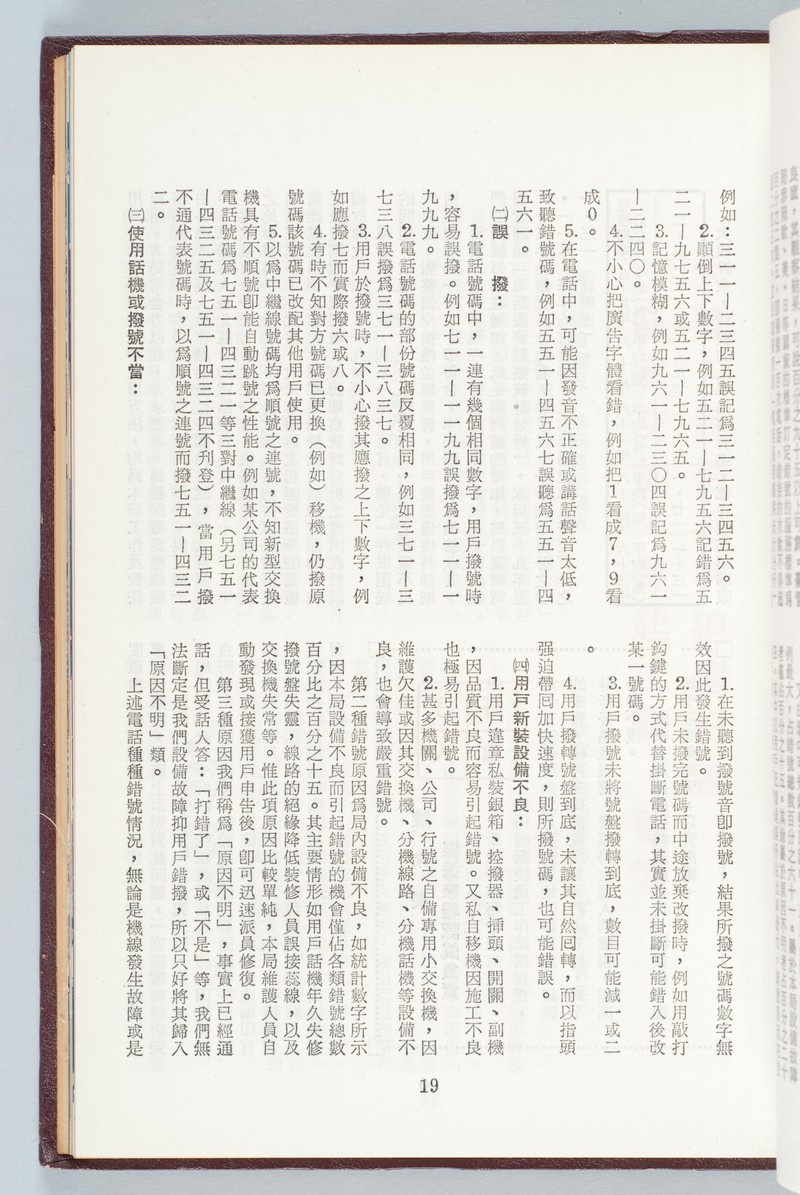 例如：三一一—二三四五誤記爲三一二—三四五六。
2.顚倒上下數字，例如五二一—七九五六記錯爲五
二一—九七五六或五二一—七九六五。
3.記憶模糊，例如九六一—二三〇四誤記爲九六一
—二二四〇。
4.不小心把廣告字體看錯，例如把1看成7，9看
成0。
5.在電話中，可能因發音不正確或講話聲音太低，
致聽錯號碼，例如五五一—四五六七誤聽爲五五一—四
五六一。
㈡誤　撥：
1.電話號碼中，一連有幾個相同數字，用戶撥號時
，容易誤撥。例如七一一—一一九九誤撥爲七一一—一
九九九。
2.電話號碼的部份號碼反覆相同，例如三七一—三
七三八誤撥爲三七一—三八三七。
3.用戶於撥號時，不小心撥其應撥之上下數字，例
如應撥七而實際撥六或八。
4.有時不知對方號碼已更換（例如）移機，仍撥原
號碼該號碼已改配其他用戶使用。
5.以爲中繼線號碼均爲順號之連號，不知新型交換
機具有不順號卽能自動跳號之性能。例如某公司的代表
電話號碼爲七五一—四三二一等三對中繼線（另七五一
—四三二五及七五一—四三二四不刋登），當用戶撥
不通代表號碼時，以爲順號之連號而撥七五一—四三二
二。
㈢使用話機或撥號不當：
1.在未聽到撥號音卽撥號，結果所撥之號碼數字無
效因此發生錯號。
2.用戶未撥完號碼而中途放棄改撥時，例如用敲打
鈎鍵的方式代替掛斷電話，其實並未掛斷可能錯入後改
某一號碼。
3.用戶撥號未將號盤撥轉到底，數目可能減一或二
。
4.用戶撥轉號盤到底，未讓其自然囘轉，而以指頭
强迫帶囘加快速度，則所撥號碼，也可能錯誤。
㈣用戶新裝設備不良：
1.用戶違章私裝銀箱、控撥器、揷頭、開關、副機
，因品質不良而容易引起錯號。又私自移機因施工不良
也極易引起錯號。
2.甚多機關、公司、行號之自備專用小交換機，因
維護欠佳或因其交換機、分機線路、分機話機等設備不
良，也會導致嚴重錯號。
第二種錯號原因爲局內設備不良，如統計數字所示
，因本局設備不良而引起錯號的機會僅佔各類錯號總數
百分比之百分之十五。其主要情形如用戶話機年久失修
撥號盤失靈，線路的絕緣降低裝修人員誤接蕊線，以及
交換機失常等。惟此項原因比較單純，本局維護人員自
動發現或接獲用戶申告後，卽可迅速派員修復。
第三種原因我們稱爲「原因不明」，事實上已經通
話，但受話人答：「打錯了」，或「不是」等，我們無
法斷定是我們設備故障抑用戶錯撥，所以只好將其歸入
「原因不明」類。
上述電話種種錯號情況，無論是機線發生故障或是
19